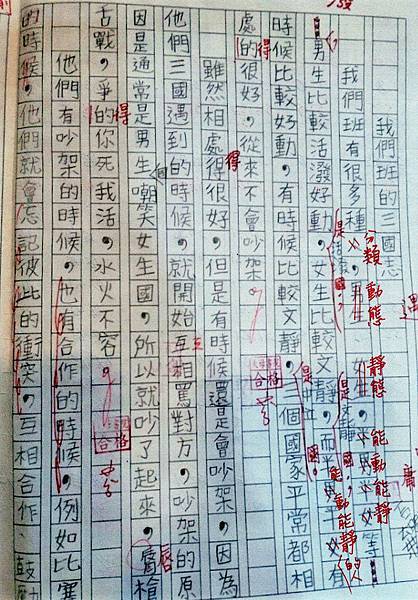 我們班的三國志
我們班有很多種，男生、女生、半男半女等
分類
動態
靜態
能動能靜
男生比較活潑好動，女生比較文靜，而半男半女有
能動能靜的
時候比較好動，有時候比較文靜，三個國家平常都相
處的很好，從來不會吵架。
得
雖然相處得很好，但是有時候還是會吵架，因為
得
合格
他們三國遇到的時候，就開始互相罵對方，吵架的原
互
因是通常是男生嘲笑女生國，所以就吵了起來，唇槍
唇
舌戰，爭的你死我活，水火不容。
得
合格
他們有吵架的時候，也有合作的時候，例如比賽
的時候，他們就會忘記彼此的衝突，互相合作、鼓勵